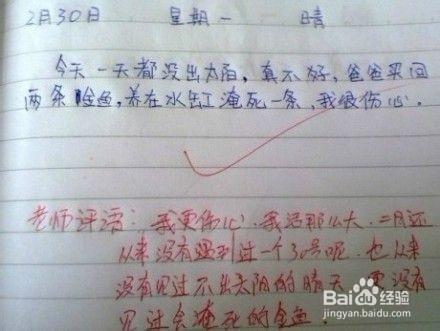 2月30日 星期一 晴
今天一天都没出太阳，真不好，爸爸买回
两条金鱼，养在水缸淹死一条，我很伤心．
老师评语：我更伤心．我活那么大，二月还
从来没有遇到过一个30号呢．也从来
没有见过不出太阳的晴天．更没有
见过会淹死的金鱼．
Baidu百度经验
jingyan.baidu.com